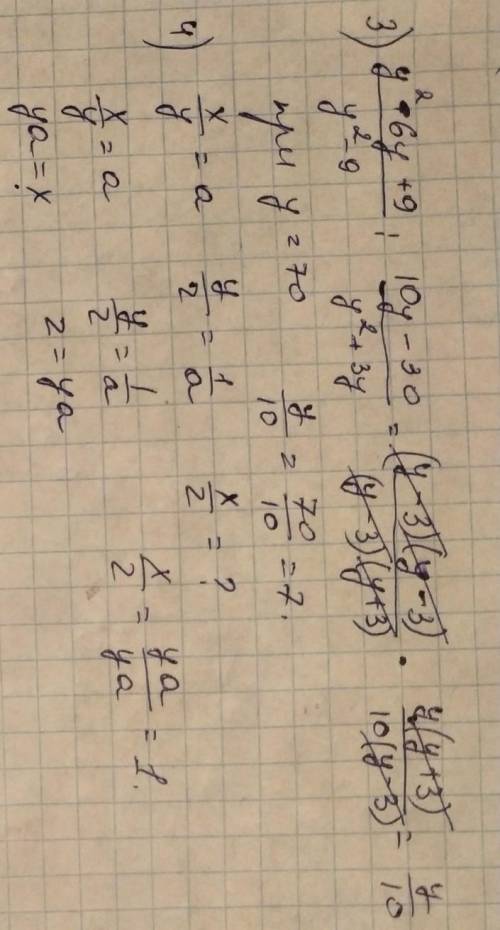 3) (y² - 6y + 9)/(y² - 9) : (10y - 30)/(y² + 3y) = ((y - 3)(y - 3))/((y - 3)(y + 3)) · (y(y + 3))/(10(y - 3)) = y/10
при y = 70   y/10 = 70/10 = 7.
4) x/y = a   y/z = 1/a   x/z = ?
x/y = a   y/z = 1/a   x/z = ya/ya = 1.
ya = x   z = ya